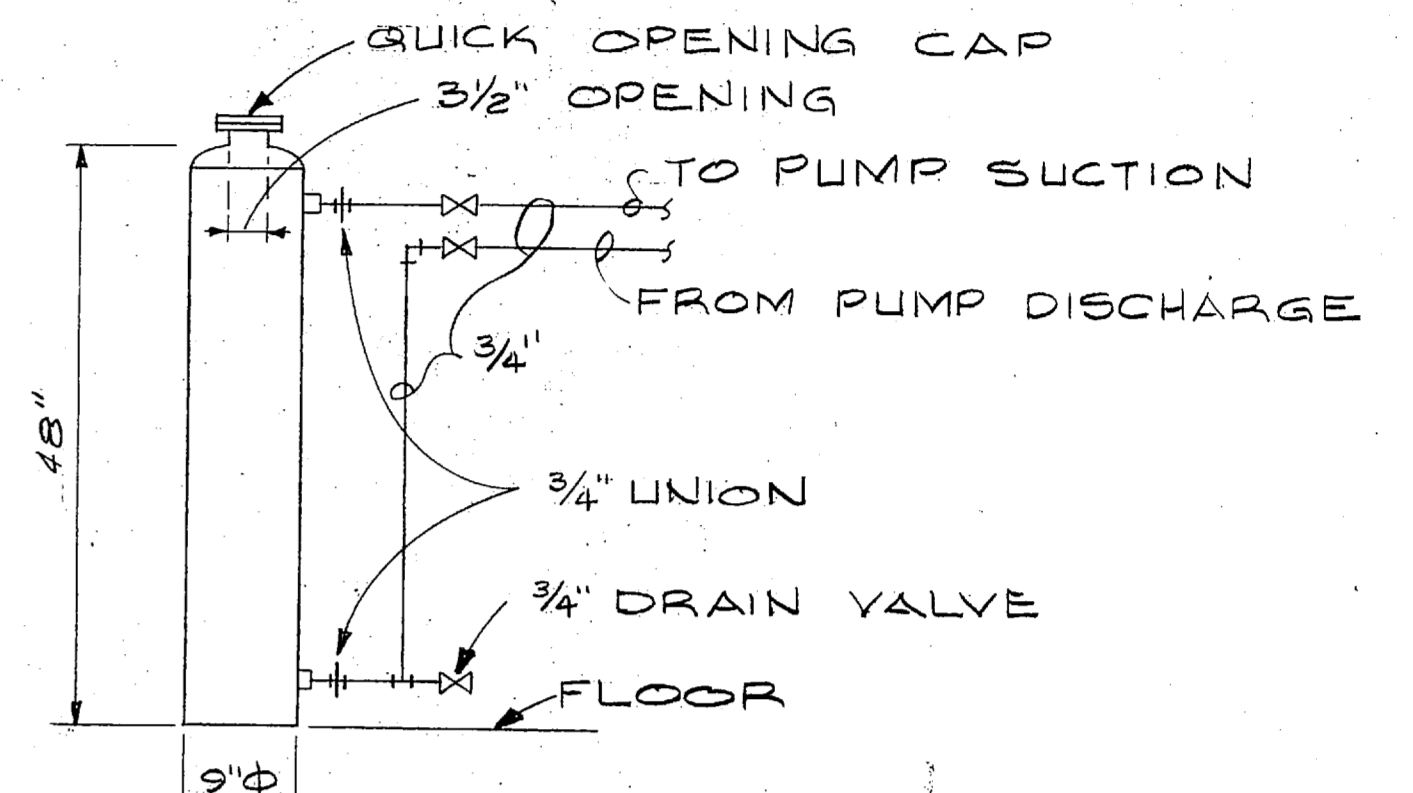 QUICK OPENING CAP
3½" OPENING
TO PUMP SUCTION
FROM PUMP DISCHARGE
3/4"
48"
3/4" UNION
3/4" DRAIN VALVE
FLOOR
9"Φ